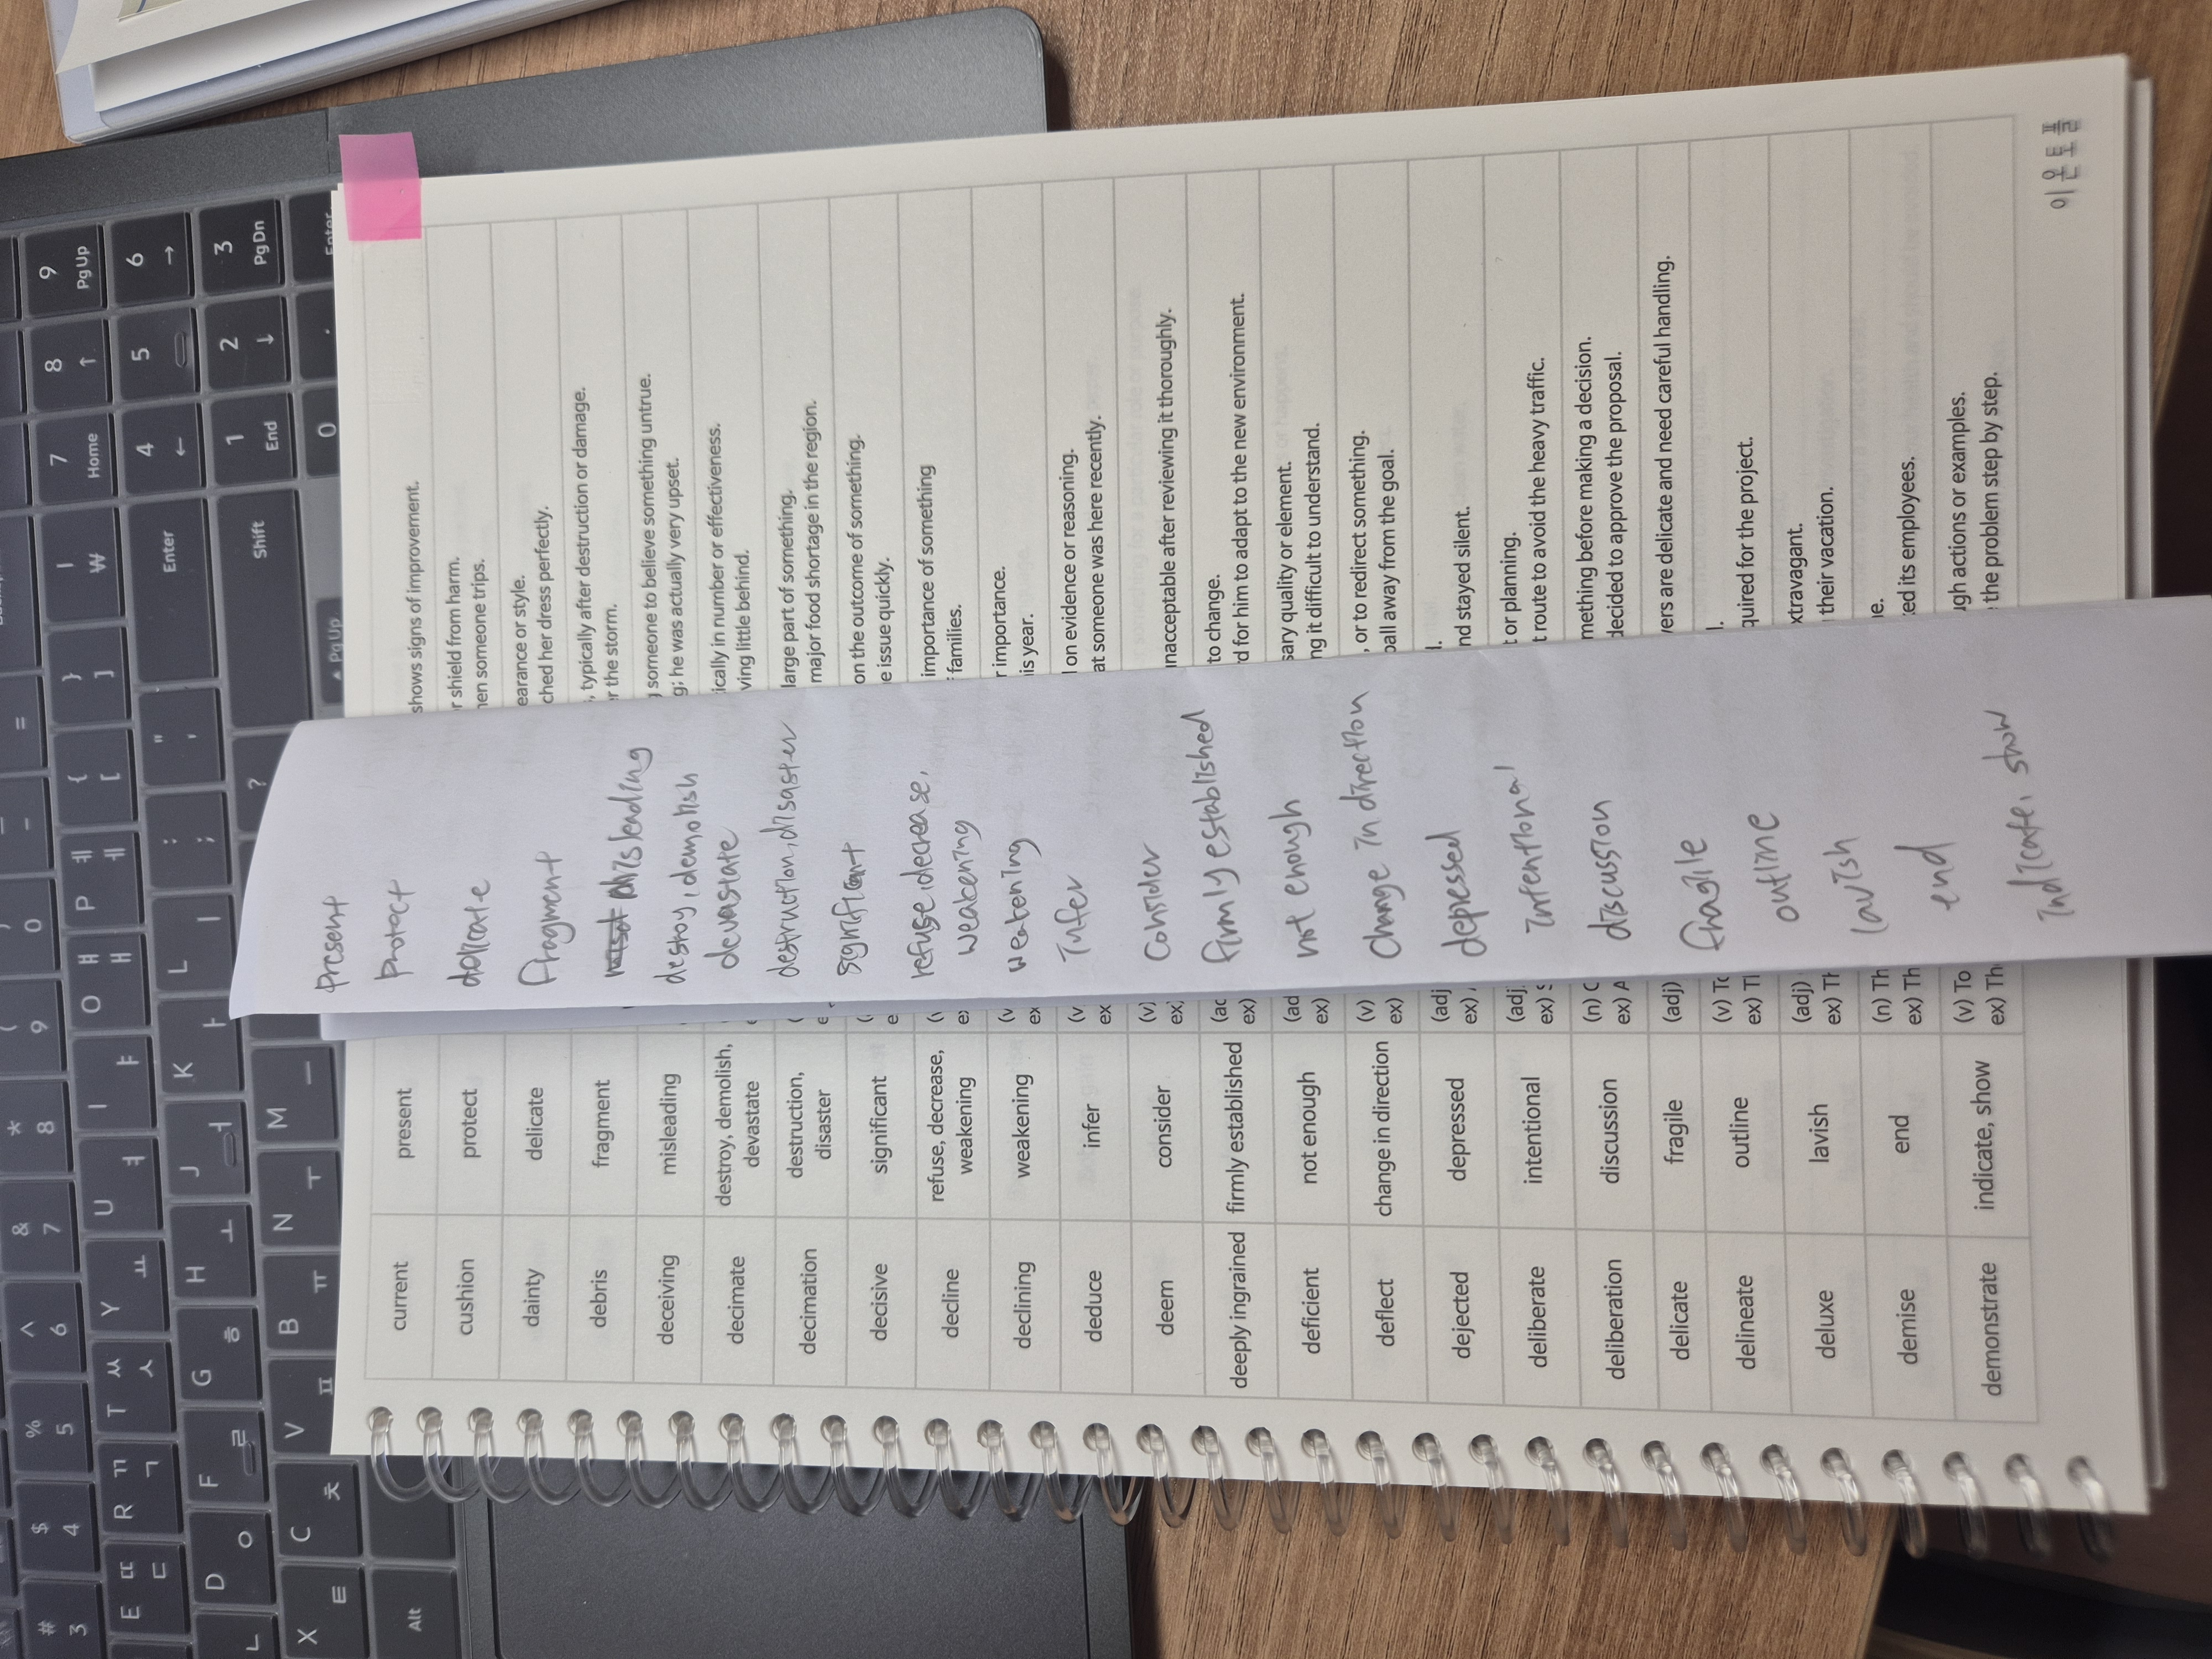 current
present
cushion
protect
dainty
delicate
debris
fragment
deceiving
misleading
decimate
destroy, demolish,
devastate
decimation
destruction,
disaster
decisive
significant
decline
refuse, decrease,
weakening
declining
weakening
deduce
infer
deem
consider
deeply ingrained
firmly established
deficient
not enough
deflect
change in direction
dejected
depressed
deliberate
intentional
deliberation
discussion
delicate
fragile
delineate
outline
deluxe
lavish
demise
end
demonstrate
indicate, show
(v)
ex)
(ad
ex)
(v)
ex)
(adj
ex)
(adj
ex)
(n)
ex) A
(adj)
(v) To
ex)
(adj)
ex) Th
(n) Th
ex) Th
(v) To
ex) The
present
protect
delicate
fragment
misleading
destroy, demolish
devastate
destruction, disaster
significant
refuse, decrease,
weakening
weakening
infer
consider
firmly established
not enough
change in direction
depressed
intentional
discussion
fragile
outline
lavish
end
indicate, show
shows signs of improvement.
r shield from harm.
hen someone trips.
earance or style.
ched her dress perfectly.
, typically after destruction or damage.
r the storm.
g someone to believe something untrue.
g; he was actually very upset.
ically in number or effectiveness.
ving little behind.
large part of something.
major food shortage in the region.
on the outcome of something.
e issue quickly.
importance of something
families.
r importance.
is year.
on evidence or reasoning.
at someone was here recently.
nacceptable after reviewing it thoroughly.
to change.
d for him to adapt to the new environment.
sary quality or element.
ng it difficult to understand.
, or to redirect something.
ball away from the goal.
l.
nd stayed silent.
t or planning.
t route to avoid the heavy traffic.
mething before making a decision.
decided to approve the proposal.
vers are delicate and need careful handling.
l.
quired for the project.
xtravagant.
their vacation.
ne.
ked its employees.
ugh actions or examples.
the problem step by step.
이온토플
# 3
$ 4
% 5
^ 6
& 7
* 8
( 9
) 0
_ -
=
E ㄸ ㄷ
R ㄲ ㄱ
T ㅆ ㅅ
Y ㅛ
U ㅕ
I ㅑ
O ㅐ ㅒ
P ㅔ ㅖ
{ [
} ]
| ₩
7 Home
8 ↑
9 PgUp
ㄴ
D ㅇ
F ㄹ
G ㅎ
H ㅗ
J ㅓ
K ㅏ
L ㅣ
: ;
" '
Enter
4 ←
5
6 →
X ㅌ
C ㅊ
V ㅍ
B ㅠ
N ㅜ
M ㅡ
?
Shift
1 End
2 ↓
3 PgDn
Alt
PgUp
0
.
Enter